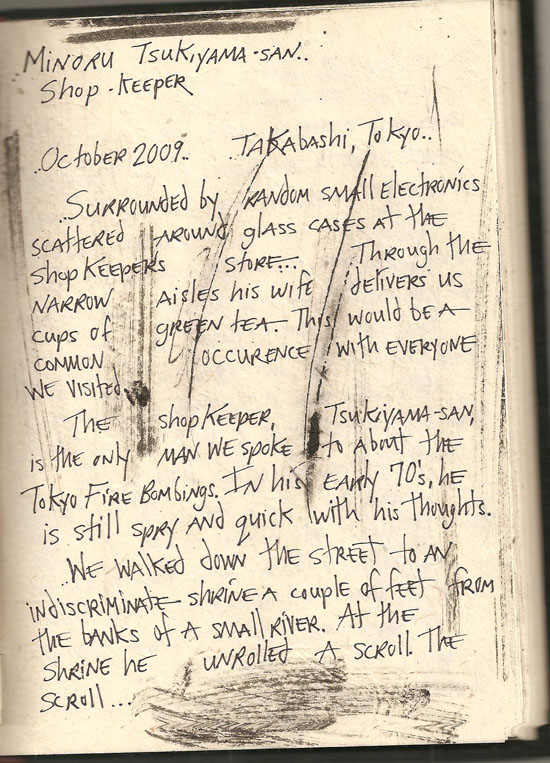 Minoru Tsukiyama-san..
Shop-keeper
..October 2009.. Takabashi, Tokyo..
..Surrounded by random small electronics
scattered around glass cases at the
shop keepers store... Through the
narrow aisles his wife delivers us
cups of green tea. This would be a
common occurence with everyone
we visited.
The shopkeeper, Tsukiyama-san,
is the only man we spoke to about the
Tokyo Fire Bombings. In his early 70's, he
is still spry and quick with his thoughts.
..We walked down the street to an
indiscriminate shrine a couple of feet from
the banks of a small river. At the
shrine he unrolled a scroll. The
scroll...